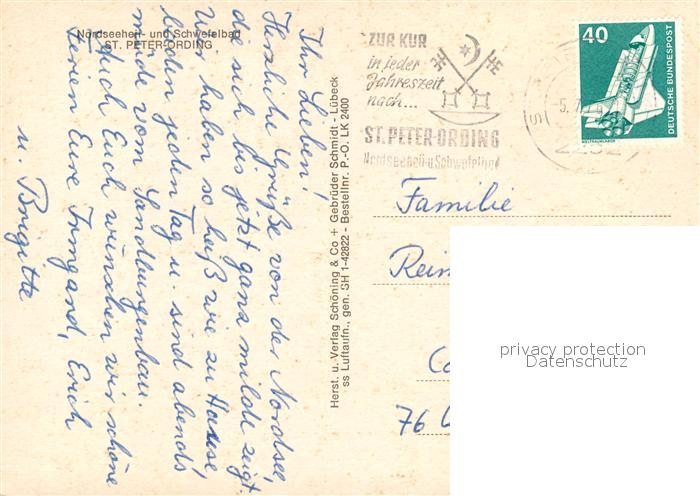 Nordseeheil- und Schwefelbad
ST. PETER-ORDING
Ihr Lieben!
Herzliche Grüße von der Nordsee,
die sich bis jetzt ganz milde zeigt.
Wir haben so heiß wie zu Hause,
baden jeden Tag u. sind abends
müde vom Sandburgenbau.
Auch Euch wünschen wir schöne
Ferien Eure Irmgard, Erich
u. Brigitte
Herst. u. Verlag Schöning & Co + Gebrüder Schmidt - Lübeck
ss Luftaufn., gen. SH 1-42822 - Bestellnr. P.-O. LK 2400
ZUR KUR
in jeder
Jahreszeit
nach...
ST. PETER-ORDING
Nordseeheil-u Schwefelbad
5.7.
40
DEUTSCHE BUNDESPOST
WELTRAUMLABOR
Familie
Reim
76
privacy protection
Datenschutz